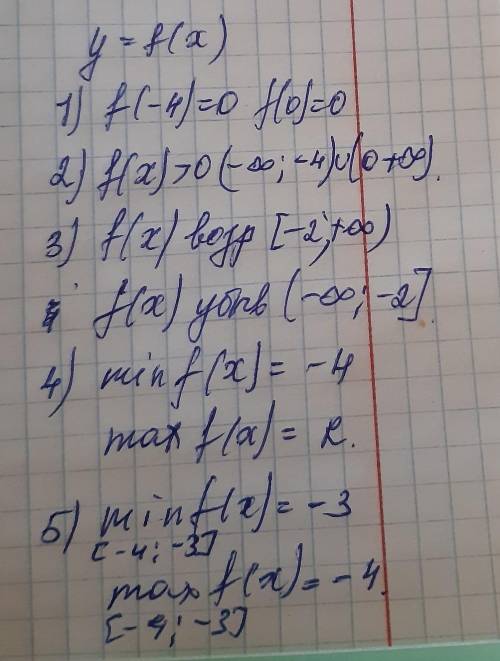 y = f(x)
1) f(-4)=0 f(0)=0
2) f(x)>0 (-∞; -4)∪(0+∞).
3) f(x) возр [-2;+∞)
f(x) убыв (-∞; -2].
4) min f(x) = -4
max f(x) = R.
5) min f(x) = -3
[-4; -3]
max f(x) = -4.
[-4; -3]